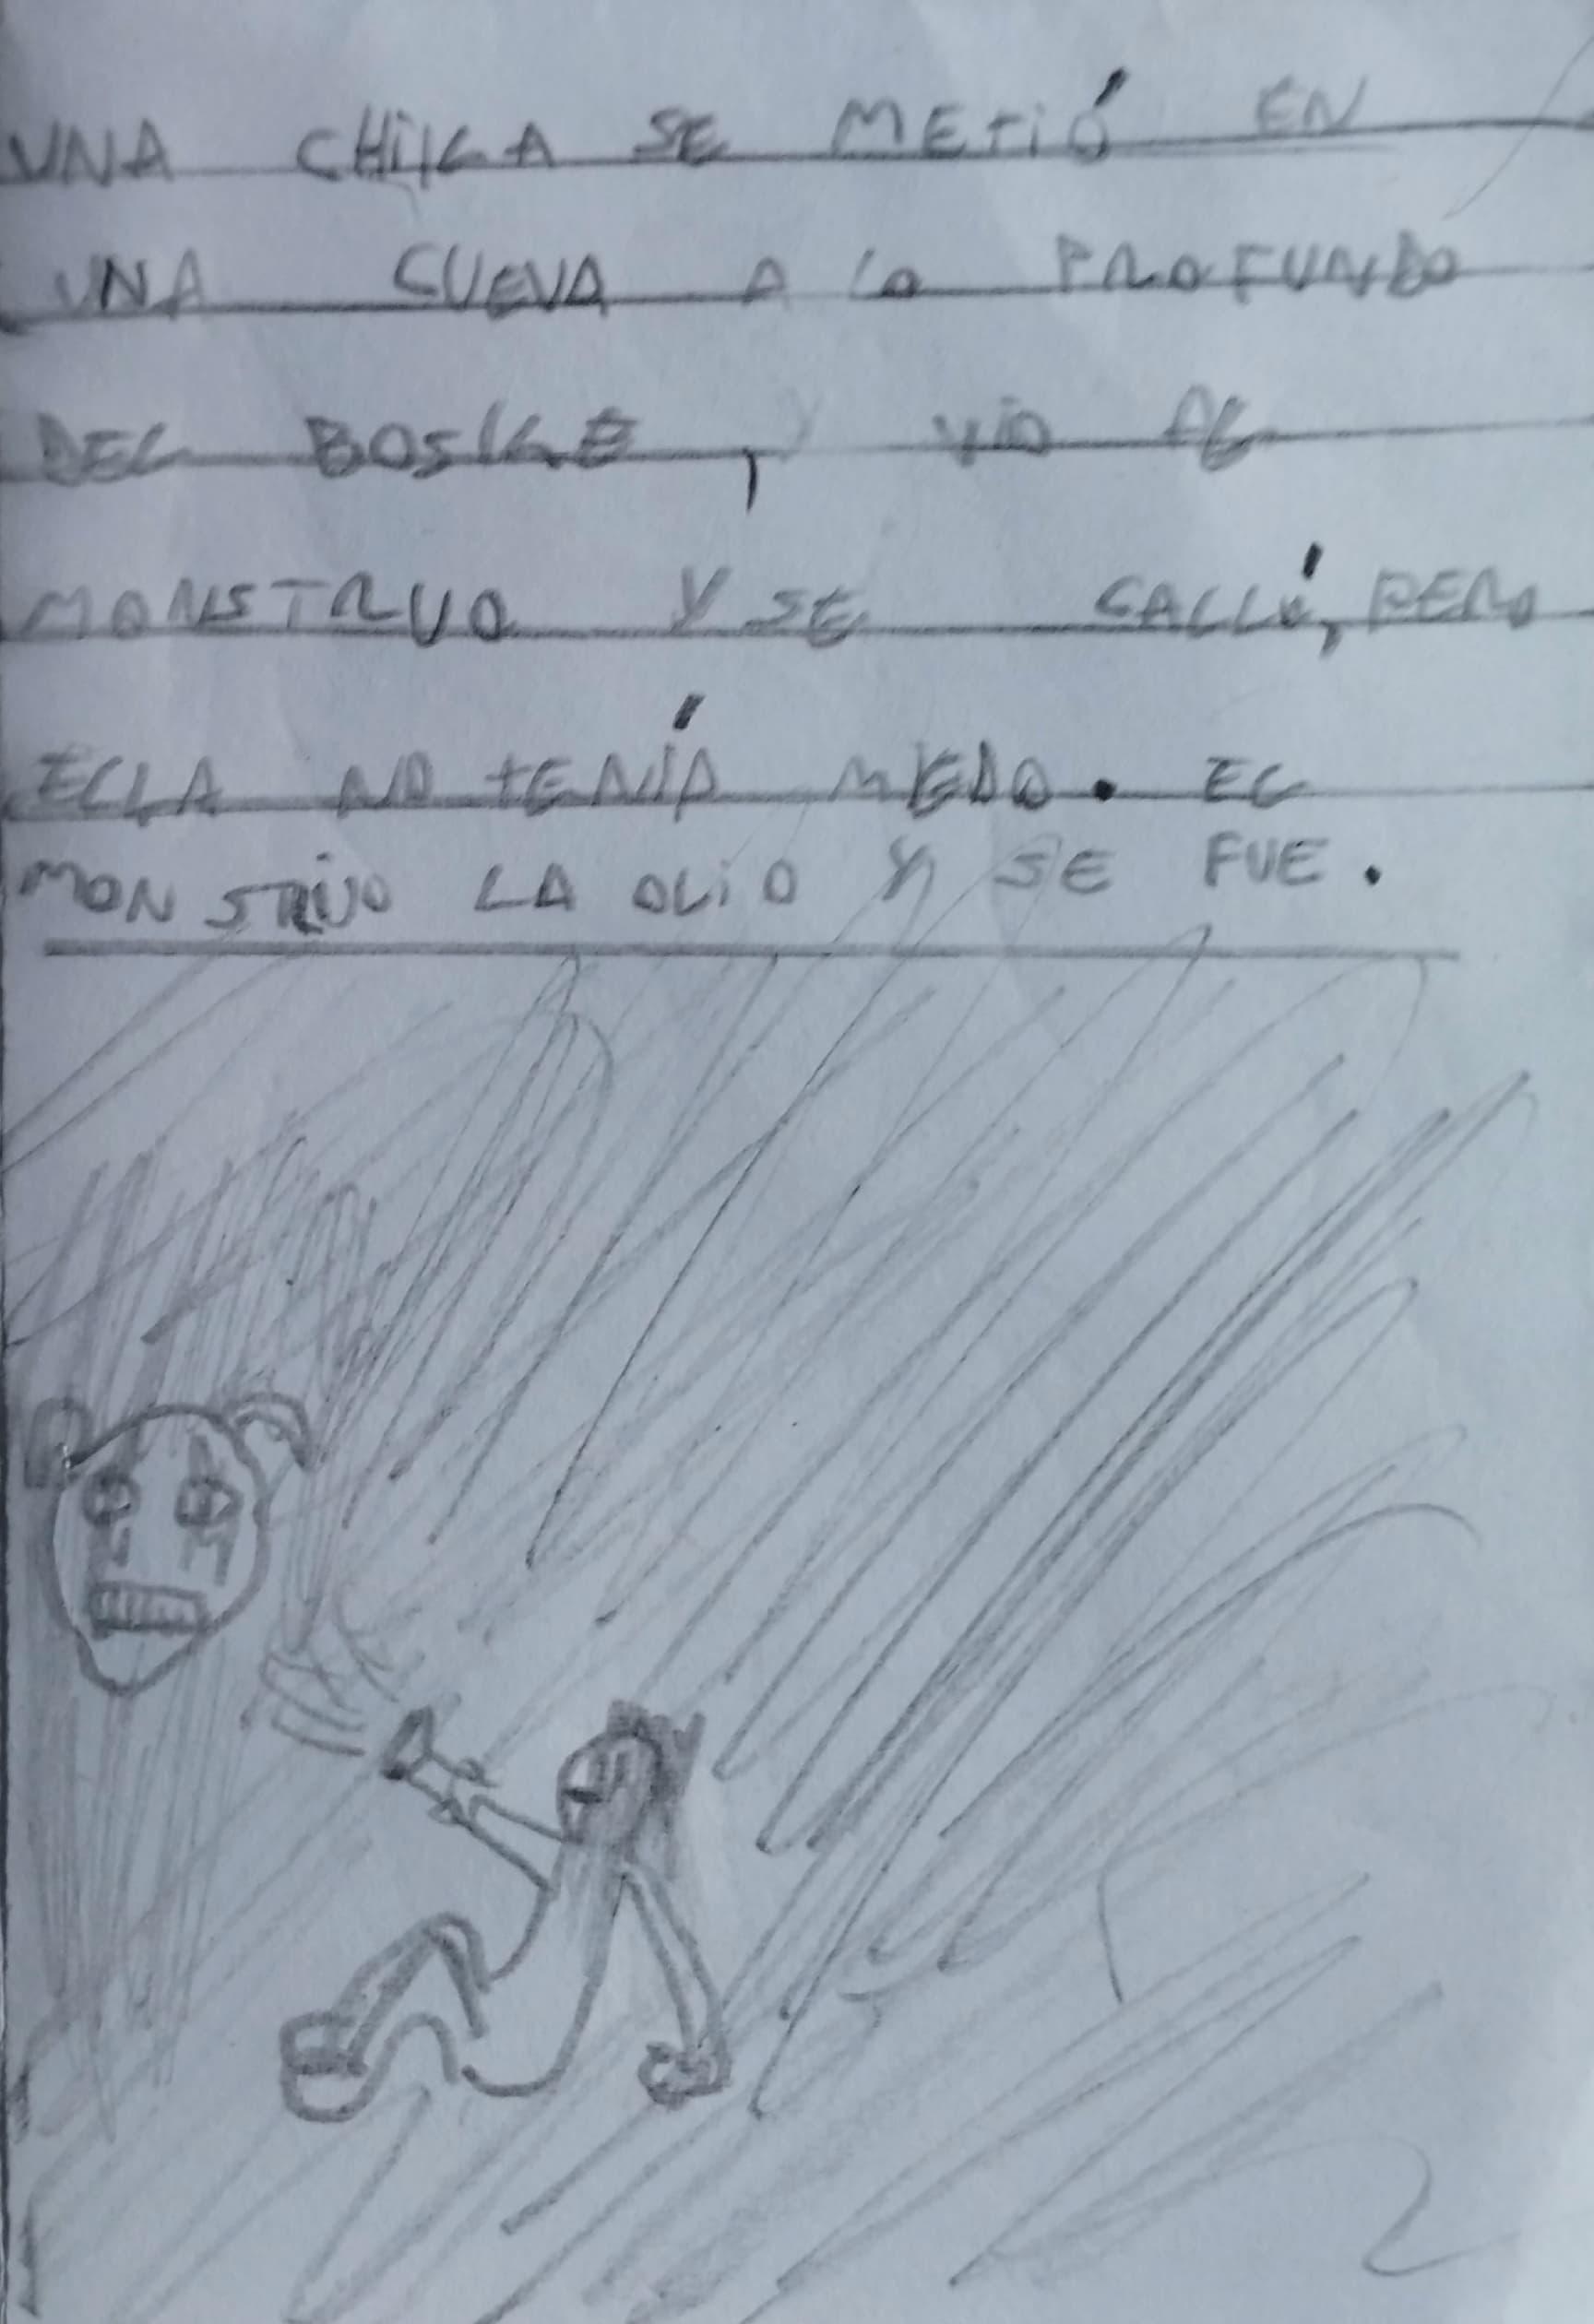 UNA CHIKA SE METIÓ EN
UNA CUEVA A LO PROFUNDO
DEL BOSKE, VIO AL
MONSTRUO Y SE CALLÓ, PERO
ELLA NO TENÍA MIEDO. EL
MONSTRUO LA OLIO Y SE FUE.